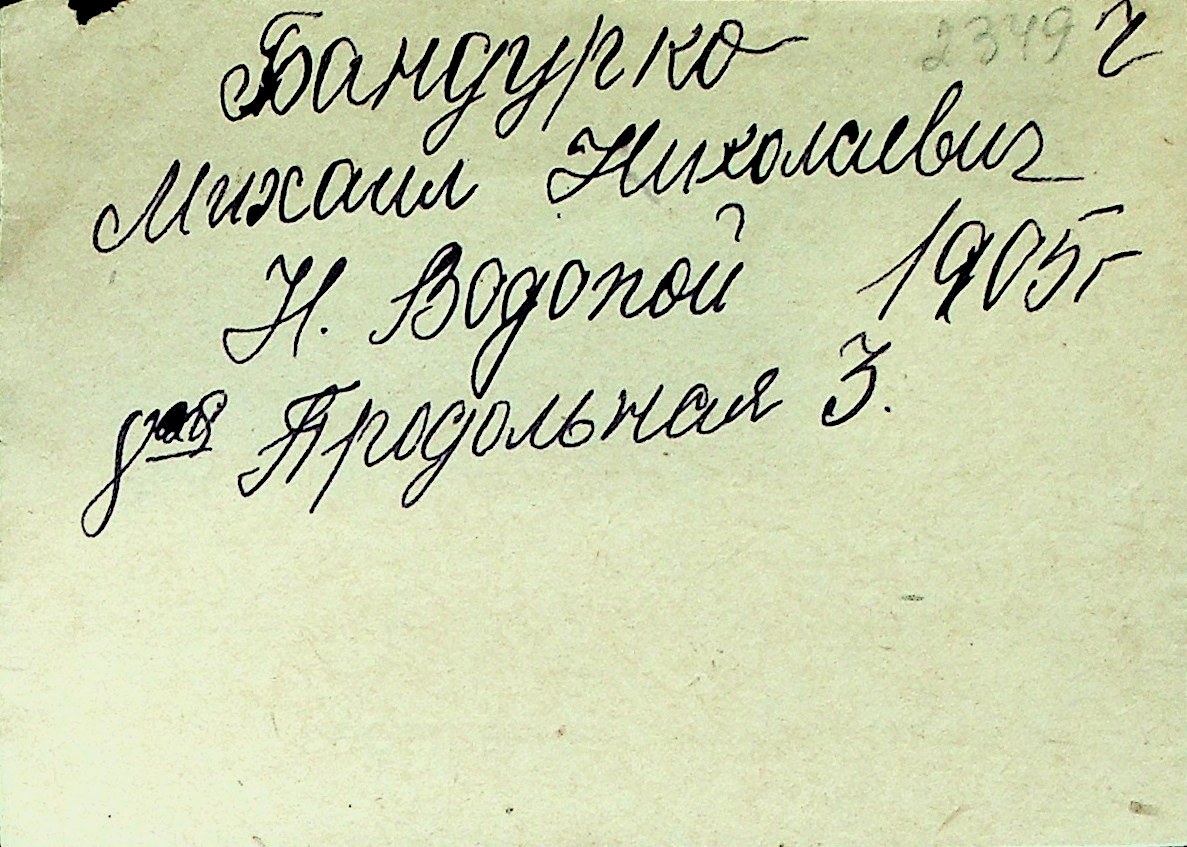 Бандурко 2349 ч
Михаил Николаевич
Н. Водопой 1905г
Продольная 3.